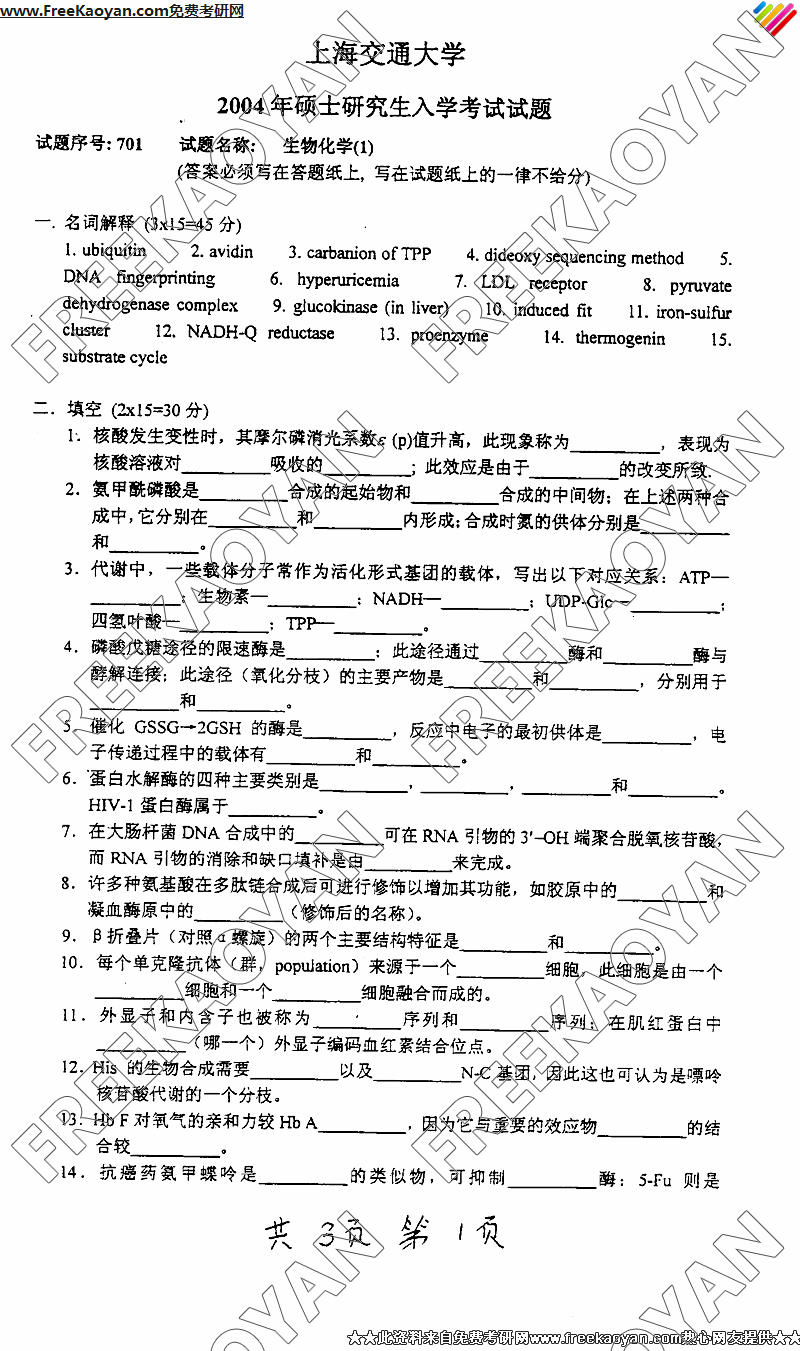 www.FreeKaoyan.com免费考研网
上海交通大学
2004年硕士研究生入学考试试题
试题序号: 701 试题名称: 生物化学(1)
(答案必须写在答题纸上, 写在试题纸上的一律不给分)
一. 名词解释 (3x15=45 分)
1. ubiquitin 2. avidin 3. carbanion of TPP 4. dideoxy sequencing method 5.
DNA fingerprinting 6. hyperuricemia 7. LDL receptor 8. pyruvate
dehydrogenase complex 9. glucokinase (in liver) 10. induced fit 11. iron-sulfur
cluster 12. NADH-Q reductase 13. proenzyme 14. thermogenin 15.
substrate cycle
二. 填空 (2x15=30 分)
1. 核酸发生变性时, 其摩尔磷消光系数ε (p)值升高, 此现象称为_________, 表现为
核酸溶液对_________吸收的_________; 此效应是由于_________的改变所致.
2. 氨甲酰磷酸是_________合成的起始物和_________合成的中间物; 在上述两种合
成中, 它分别在_________和_________内形成; 合成时氮的供体分别是_________
和_________。
3. 代谢中, 一些载体分子常作为活化形式基团的载体, 写出以下对应关系: ATP—
_________; 生物素—_________; NADH—_________; UDP-Glc—_________;
四氢叶酸—_________; TPP—_________.
4. 磷酸戊糖途径的限速酶是_________; 此途径通过_________酶和_________酶与
酵解连接; 此途径 (氧化分枝) 的主要产物是_________和_________, 分别用于
_________和_________。
5. 催化 GSSG→2GSH 的酶是_________, 反应中电子的最初供体是_________, 电
子传递过程中的载体有_________和_________。
6. 蛋白水解酶的四种主要类别是_________, _________, _________和_________。
HIV-1 蛋白酶属于_________。
7. 在大肠杆菌 DNA 合成中的_________可在 RNA 引物的 3′–OH 端聚合脱氧核苷酸,
而 RNA 引物的消除和缺口填补是由_________来完成。
8. 许多种氨基酸在多肽链合成后可进行修饰以增加其功能, 如胶原中的_________和
凝血酶原中的_________ (修饰后的名称)。
9. β折叠片 (对照α螺旋) 的两个主要结构特征是_________和_________。
10. 每个单克隆抗体 (群, population) 来源于一个_________细胞, 此细胞是由一个
_________细胞和一个_________细胞融合而成的。
11. 外显子和内含子也被称为_________序列和_________序列; 在肌红蛋白中
_________ (哪一个) 外显子编码血红素结合位点。
12. His 的生物合成需要_________以及_________N-C 基团, 因此这也可认为是嘌呤
核苷酸代谢的一个分枝。
13. Hb F 对氧气的亲和力较 Hb A_________, 因为它与重要的效应物_________的结
合较_________。
14. 抗癌药氨甲蝶呤是_________的类似物, 可抑制_________酶; 5-Fu 则是
共 3 页 第 1 页
★★此资料来自免费考研网www.freekaoyan.com热心网友提供★★
FREEKAOYAN
FREEKAOYAN
FREEKAOYAN
FREEKAOYAN
FREEKAOYAN
FREEKAOYAN